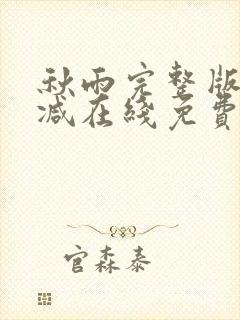 秋雨完整版
减在线免费
官森泰